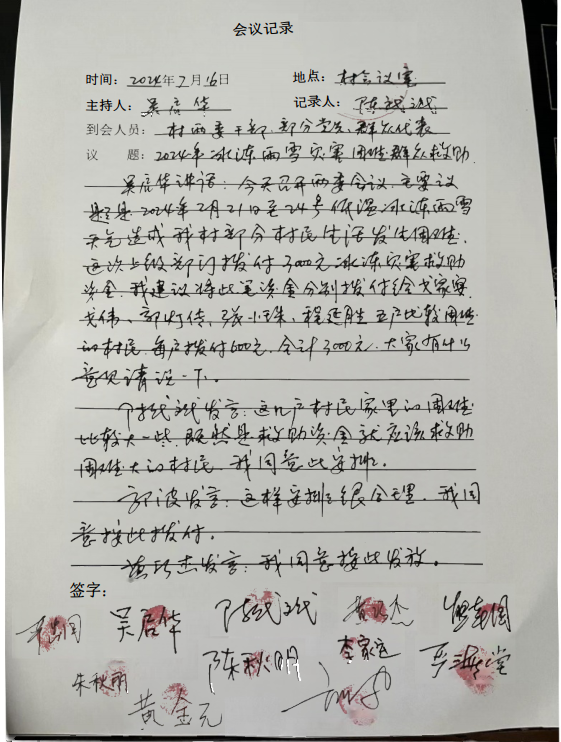 会议记录
时间：2024年7月16日 地点：村会议室
主持人：吴启华 记录人：陈战战
到会人员：村两委干部、部分党员、群众代表
议 题：2024年冰冻雨雪灾害困难群众救助
吴启华讲话：今天召开两委会议，主要议
题是2024年2月21日至24号低温冰冻雨雪
天气造成我村部分村民生活发生困难，
这次上级部门拨付3000元冰冻灾害救助
资金，我建议将此笔资金分别拨付给戈家
戈伟、郭灯传、张小珠、程延胜五户比较困难
的村民，每户拨付600元，合计3000元，大家有什么
意见请说一下。
陈战战发言：这几户村民家里的困难
比较大一些，既然是救助资金就应该救助
困难大的村民，我同意此安排。
郭波发言：这样安排很合理，我同
意按此拨付。
杰发言：我同意按此发放。
签字：
吴启华 陈战战
陈秋明 李家
朱秋丽
黄金元